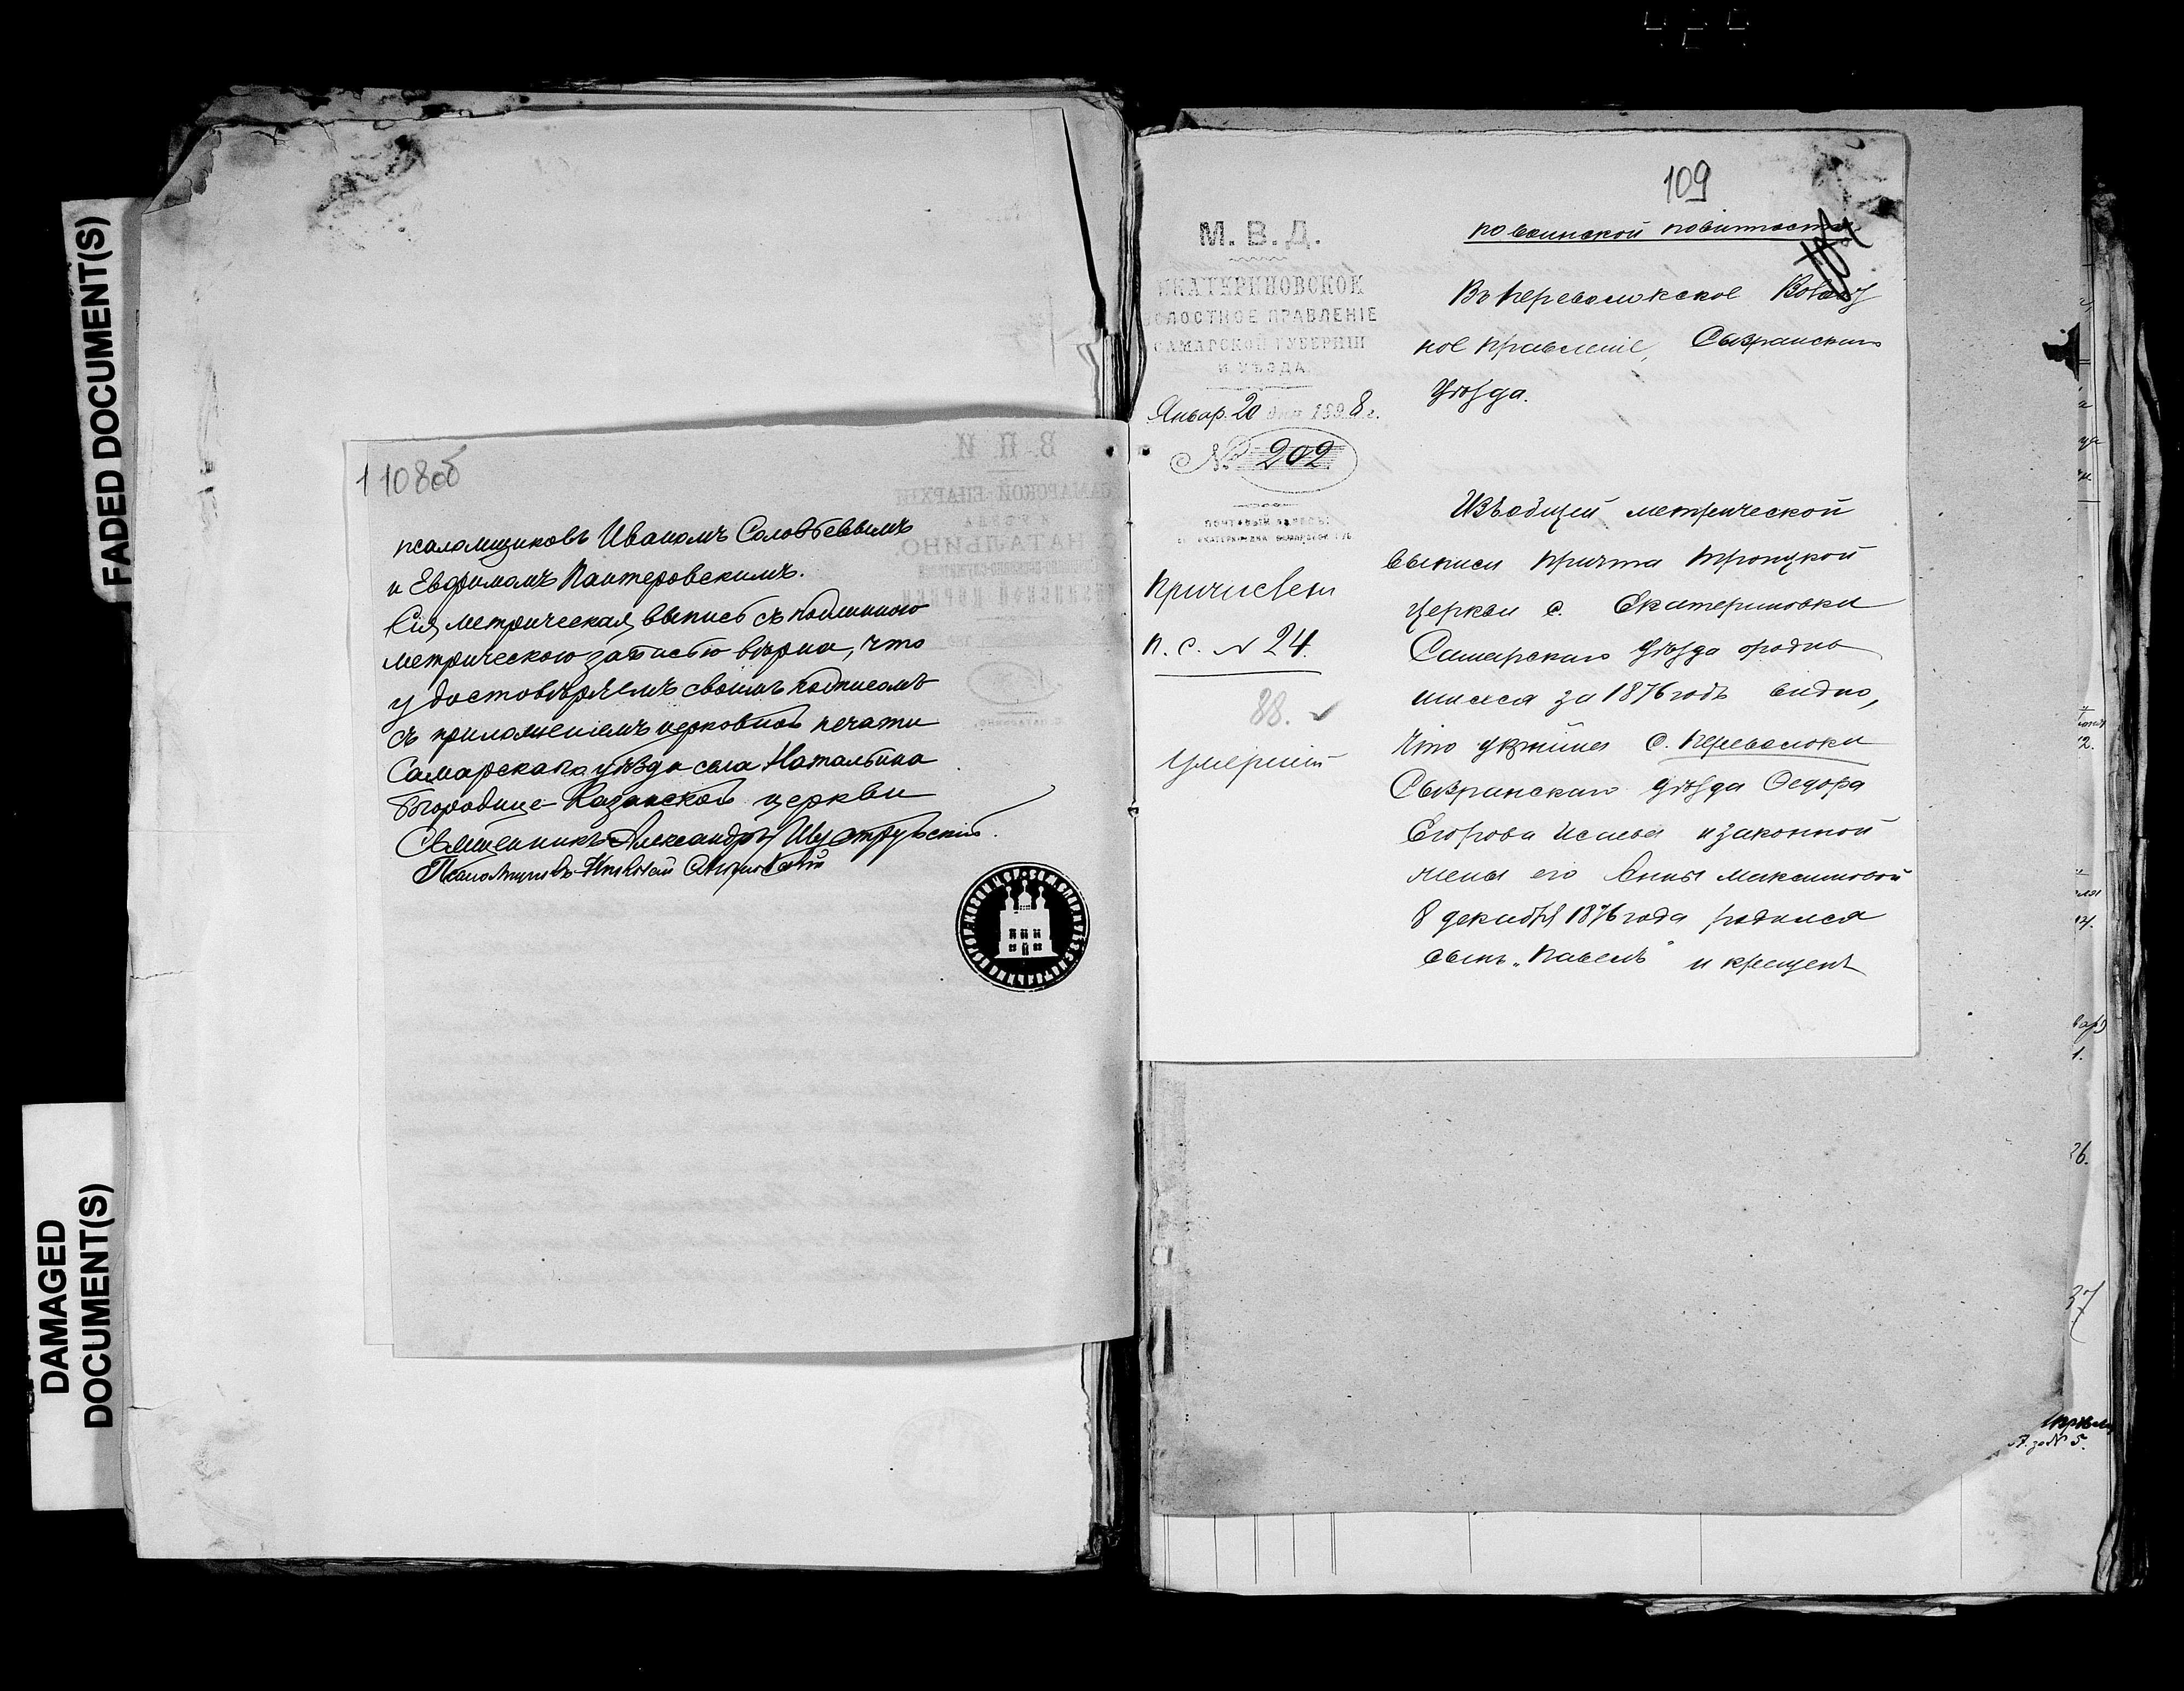 FADED DOCUMENT(S)
DAMAGED
DOCUMENT(S)
108об
псаломщиковъ Иваномъ Соловьевымъ
и Евфимомъ Пантеровскимъ.
Сія метрическая выпись съ подлинною
метрическою записью вѣрна, что
удостовѣряемъ своимъ подписомъ
съ приложеніемъ церковной печати
Самарскаго уѣзда села Натальина
Богородице-Казанской церкви
Священникъ Александръ
Псаломщикъ Николай
109
по воинской повинности
М. В. Д.
ЕКАТЕРИНОВСКОЕ
ВОЛОСТНОЕ ПРАВЛЕНІЕ
САМАРСКОЙ ГУБЕРНІИ
И УѢЗДА.
Январ. 20 дня 1908 г.
№ 202
ПОЧТОВЫЙ АДРЕСЪ:
Причислен
п. с. № 24.
88.
умершій
Въ Переволокское Волост
ное Правленіе, Сызранскаго
уѣзда.
Изъ общей метрической
выписи причта Троицкой
церкви с. Екатериновки
Самарскаго уѣзда о родив
шихся за 1876 годъ видно,
что у кр-на с. Переволоки
Сызранскаго уѣзда Ѳедора
Егорова Исаева и законной
жены его Анны Максимовой
8 декабря 1876 года родился
сынъ „Павелъ" и крещенъ